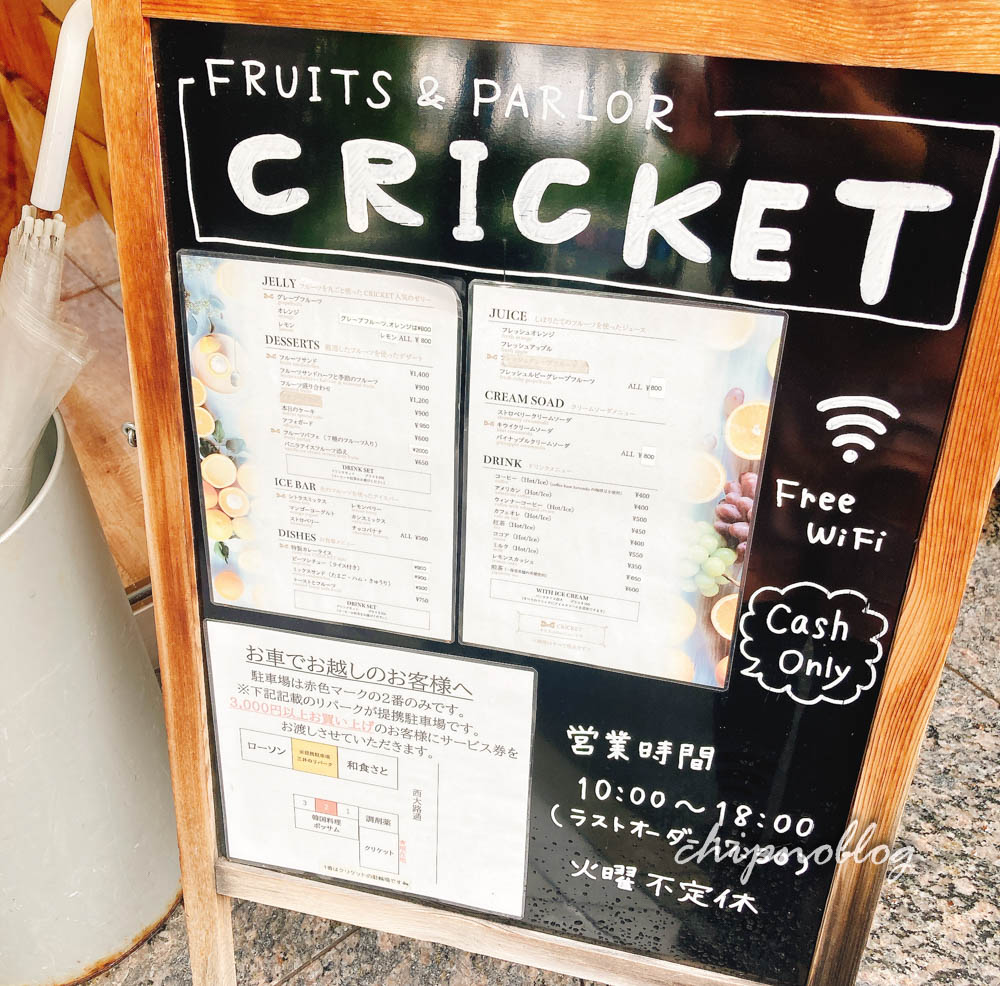 FRUITS & PARLOR
CRICKET
JELLY フルーツを丸ごと使ったCRICKET人気のゼリー
グレープフルーツ
オレンジ
レモン
グレープフルーツ、オレンジは¥900
レモン ALL ¥800
DESSERTS 厳選したフルーツを使ったデザート
フルーツサンド ¥1,400
フルーツサンドハーフと季節のフルーツ ¥900
フルーツ盛り合わせ ¥1,200
本日のケーキ ¥900
アフォガード ¥980
フルーツパフェ(7種のフルーツ入り) ¥600
バニラアイスフルーツ添え ¥2000
¥650
DRINK SET
ICE BAR
シトラスミックス
レモンベリー
マンゴーヨーグルト
カシスミックス
ストロベリー
チョコバナナ
ALL ¥500
DISHES お食事メニュー
特製カレーライス
ビーフシチュー(ライス付き)
ミックスサンド(たまご・ハム・きゅうり)
トーストとフルーツ
¥750
DRINK SET
JUICE しぼりたてのフルーツを使ったジュース
フレッシュオレンジ
フレッシュアップル
フレッシュルビーグレープフルーツ
ALL ¥800
CREAM SOAD クリームソーダメニュー
ストロベリークリームソーダ
キウイクリームソーダ
パイナップルクリームソーダ
ALL ¥800
DRINK ドリンクメニュー
コーヒー(Hot/Ice) ¥400
アメリカン(Hot/Ice) ¥400
ウィンナーコーヒー(Hot/Ice) ¥500
カフェオレ(Hot/Ice) ¥450
紅茶(Hot/Ice) ¥400
ココア(Hot/Ice) ¥550
ミルク(Hot/Ice) ¥350
レモンスカッシュ
煎茶
¥600
WITH ICE CREAM
CRICKET
Free
WiFi
Cash
Only
お車でお越しのお客様へ
駐車場は赤色マークの2番のみです。
※下記記載のリパークが提携駐車場です。
3,000円以上お買い上げのお客様にサービス券を
お渡しさせていただきます。
ローソン
三井のリパーク
和食さと
西大路通
3 2 1
調剤薬
韓国料理
ポッサム
クリケット
1番はクリケットの駐輪場です
営業時間
10:00〜18:00
(ラストオーダー
火曜 不定休
chipmoblog